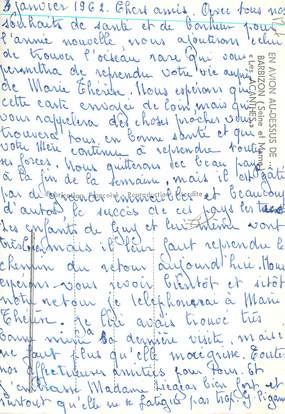 3 janvier 1962. Chers amis. Avec tous nos
souhaits de santé et de bonheur pour
l'année nouvelle, nous ajoutons celui
de trouver l'oiseau rare qui vous
permettra de reprendre votre vie auprès
de Marie Thérèse. Nous espérons que
cette carte envoyée de loin, mais qui
vous rappellera des choses proches vous
trouvera tous en bonne santé et que
votre Mère continue à reprendre toutes
ses forces. Nous quitterons ce beau pays
à la fin de la semaine, mais il est gâté
par de immeubles et beaucoup
d'autos, le succès de ces pays les tue
Les enfants de Guy et lui même vont
très bien mais il leur faut reprendre le
chemin du retour aujourd'hui. Nous
espérons vous revoir bientôt et sitôt
notre retour je téléphonerai à Marie
Thérèse. Je lui avais trouvé très
bonne mine à sa dernière visite, mais
ne faut plus qu'elle maigrisse. Toutes
nos affectueuses amitiés pour tous. Et
j'embrasse Madame bien fort et
surtout qu'elle ne se fatigue pas trop.
EN AVION AU-DESSUS DE ...
BARBIZON (Seine et Marne)